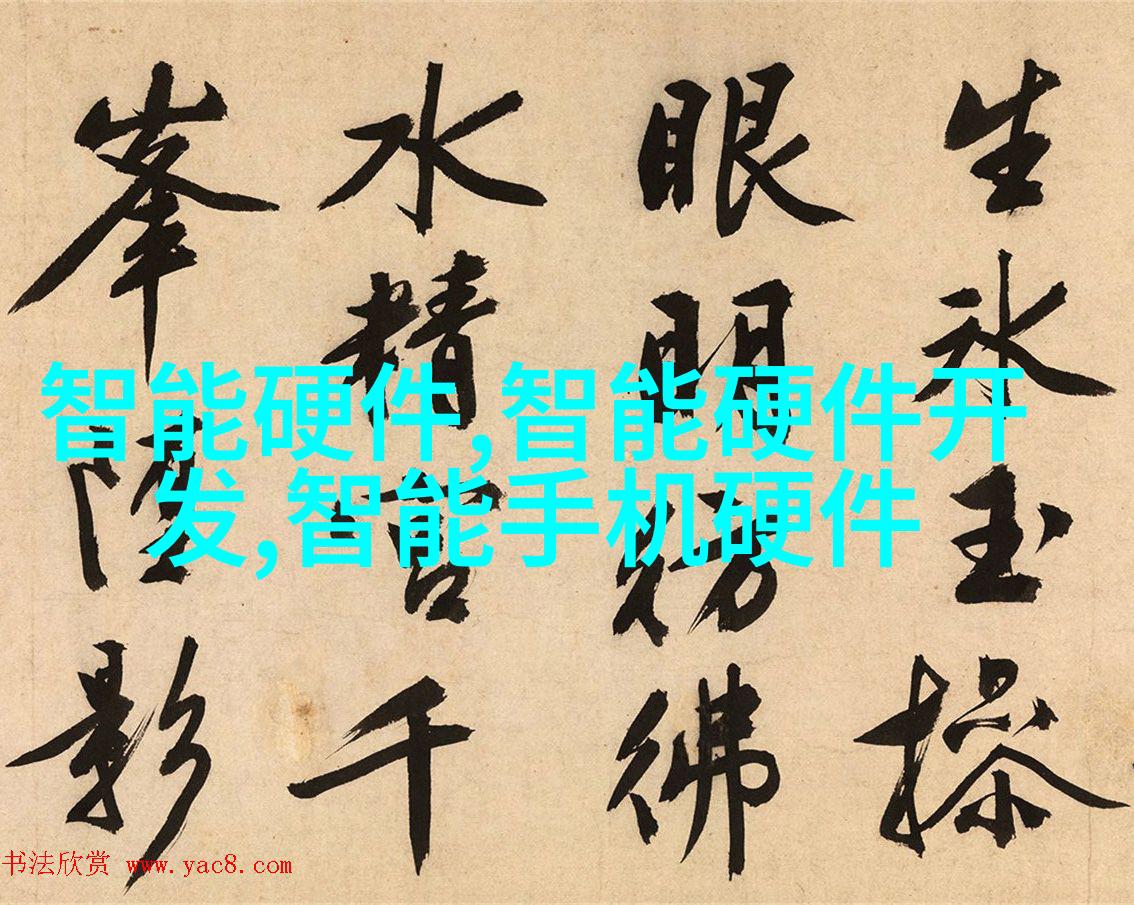 生冰玉操
眼明彷彿
水精宮千
峯隂影
智能硬件,智能硬件开
发,智能手机硬件
书法欣赏 www.yac8.com